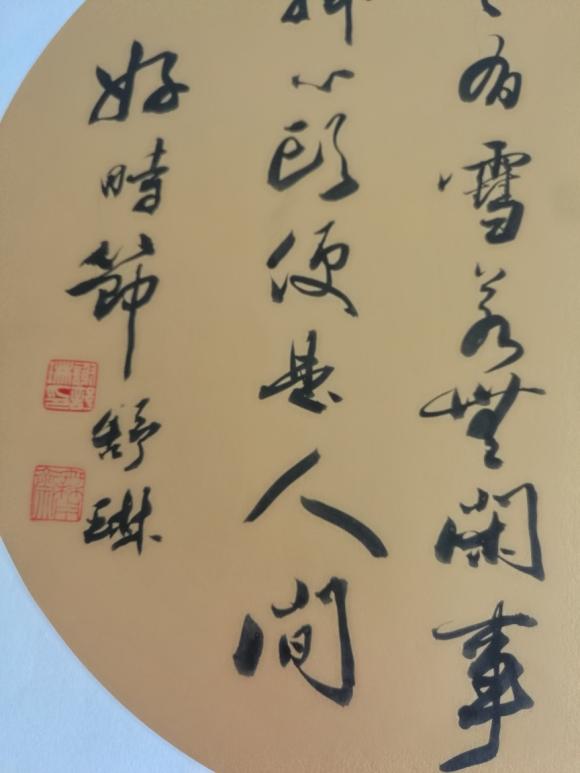 有雪若無閑事
心頭便是人間
好時節 舒琳